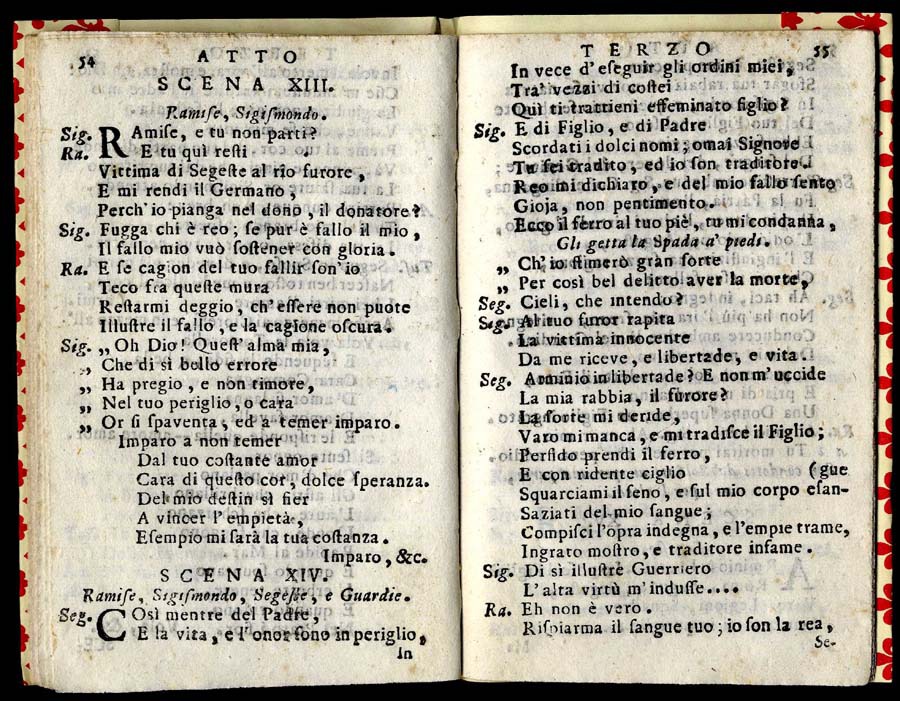 54
ATTO
SCENA XIII.
Ramiſe, Sigiſmondo.
Sig. RAmiſe, e tu non parti?
Ra. E tu quì reſti
Vittima di Segeſte al rio furore,
E mi rendi il Germano,
Perch' io pianga nel dono, il donatore?
Sig. Fugga chi è reo; ſe pur è fallo il mio,
Il fallo mio vuò ſoſtener con gloria.
Ra. E ſe cagion del tuo fallir ſon' io
Teco fra queſte mura
Reſtarmi deggio, ch' eſſere non puote
Illuſtre il fallo, e la cagione oſcura.
Sig. „ Oh Dio! Queſt' alma mia,
„ Che di sì bello errore
„ Ha pregio, e non timore,
„ Nel tuo periglio, o cara
„ Or ſi ſpaventa, ed a temer imparo.
Imparo a non temer
Dal tuo coſtante amor
Cara di queſto cor, dolce ſperanza.
Del mio deſtin sì fier
A vincer l' empietà,
Eſempio mi ſarà la tua coſtanza.
Imparo, &c.
SCENA XIV.
Ramiſe, Sigiſmondo, Segeſte, e Guardie.
Seg. COsì mentre del Padre,
E la vita, e l' onor ſono in periglio,
In
TERZO
55
In vece d' eſeguir gli ordini miei,
Tra' vezzi di coſtei
Quì ti trattieni effeminato figlio?
Sig. E di Figlio, e di Padre
Scordati i dolci nomi; omai Signore
Tu ſei tradito, ed io ſon traditore.
Reo mi dichiaro, e del mio fallo ſento
Gioja, non pentimento.
Ecco il ferro al tuo piè, tu mi condanna,
Gli getta la Spada a' piedi.
„ Ch' io ſtimerò gran ſorte
„ Per così bel delitto aver la morte,
Seg. Cieli, che intendo?
Sig. Al tuo furor rapita
La vittima innocente
Da me riceve, e libertade, e vita.
Seg. Arminio in libertade? E non m' uccide
La mia rabbia, il furore?
La ſorte mi deride,
Varo mi manca, e mi tradiſce il Figlio;
Perfido prendi il ferro,
E con ridente ciglio (gue
Squarciami il ſeno, e ſul mio corpo eſan-
Saziati del mio ſangue;
Compiſci l' opra indegna, e l' empie trame,
Ingrato moſtro, e traditore infame.
Sig. Di sì illuſtre Guerriero
L' alta virtù m' induſſe....
Ra. Eh non è vero.
Riſpiarma il ſangue tuo; io ſon la rea,
Se-